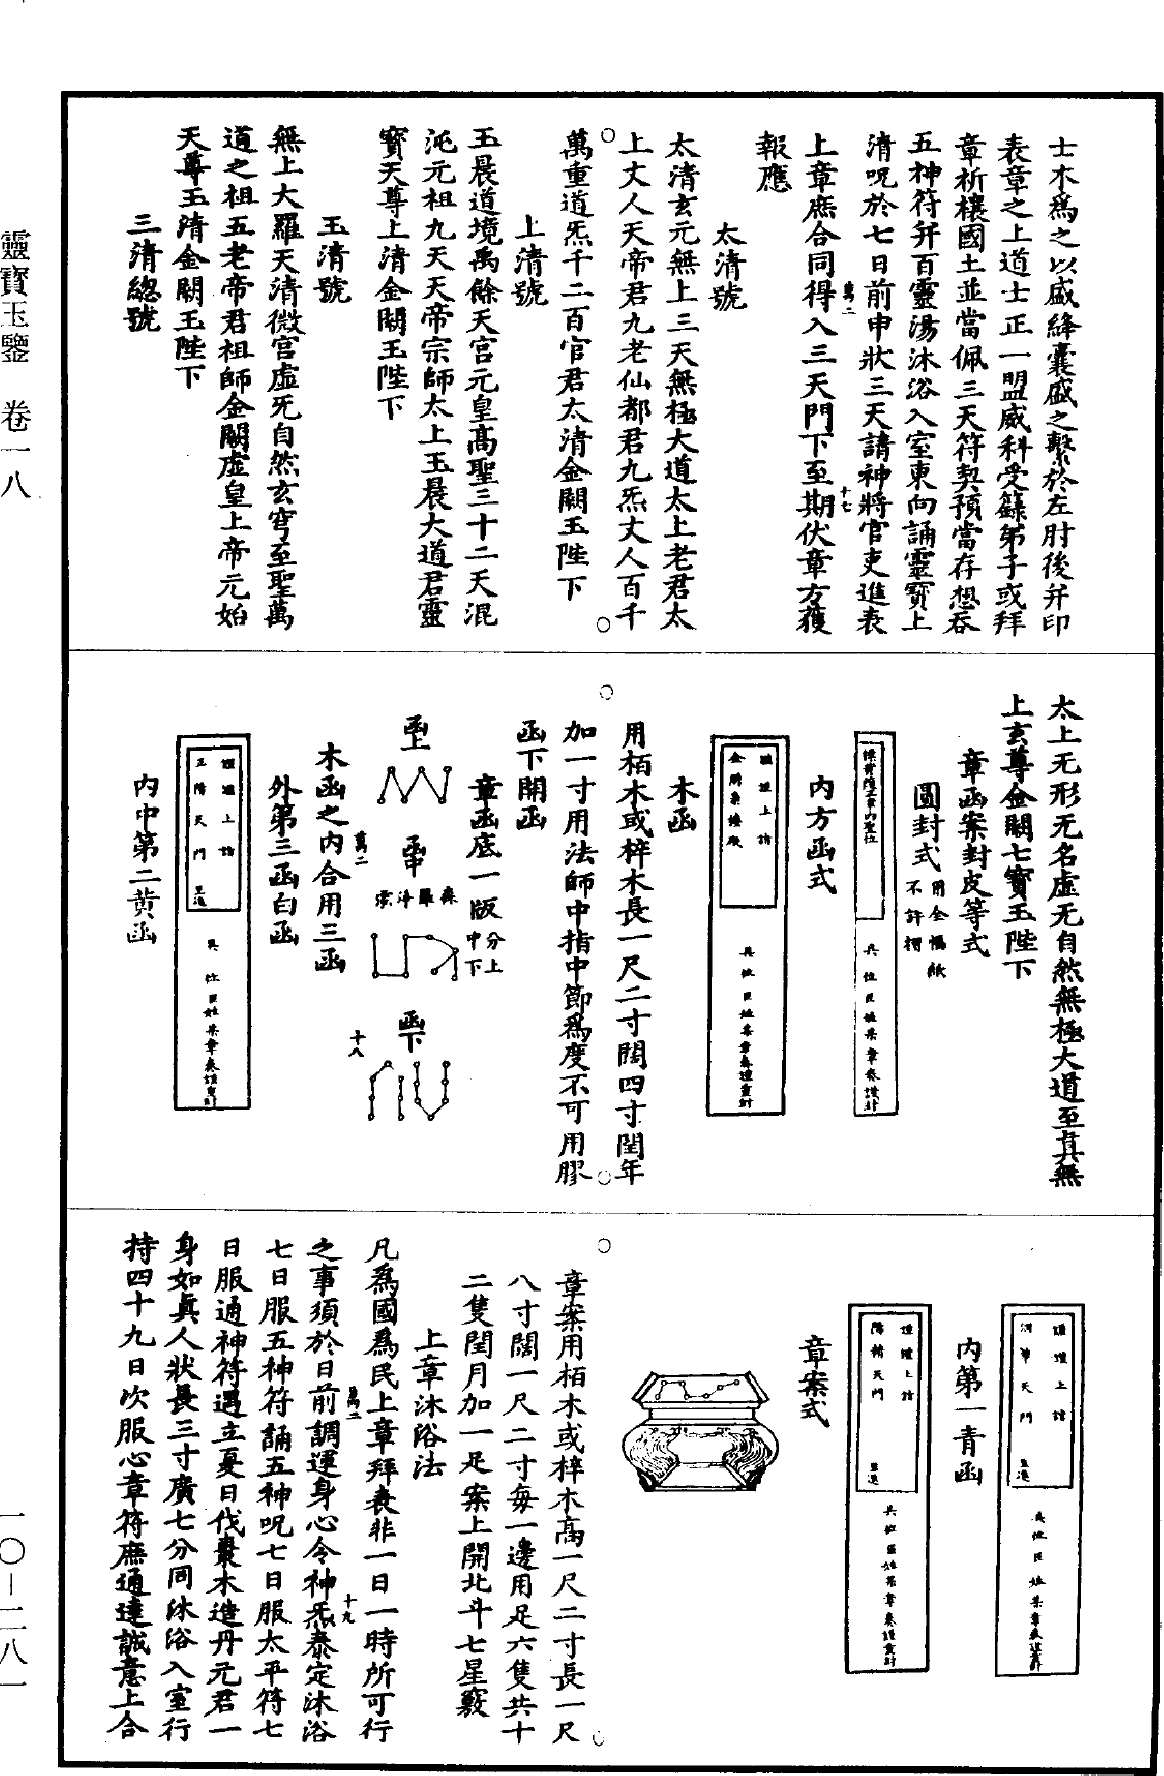 士木為之以盛絳囊盛之繫於左肘後并印
表章之上道士正一盟威科受籙弟子或拜
章祈禳國土並當佩三天符契預當存想吞
五神符并百靈湯沐浴入室東向誦靈寶上
清呪於七日前申狀三天請神將官吏進表
上章庶合同得入三天門下至期伏章方獲
報應
萬二
十七
太清號
太清玄元無上三天無極大道太上老君太
上丈人天帝君九老仙都君九炁丈人百千
萬重道炁千二百官君太清金闕玉陛下
上清號
玉晨道境禹餘天宮元皇高聖三十二天混
沌元祖九天天帝宗師太上玉晨大道君靈
寶天尊上清金闕玉陛下
玉清號
無上大羅天清微宮虛无自然玄穹至聖萬
道之祖五老帝君祖師金闕虛皇上帝元始
天尊玉清金闕玉陛下
三清總號
太上无形无名虛无自然無極大道至真無
上玄尊金闕七寶玉陛下
章函案封皮等式
圓封式用全幅紙
不許摺
具位臣姓某章奏謹封
內方函式
謹謹上詣
具位臣姓某章奏謹重封
木函
用栢木或梓木長一尺二寸闊四寸閏年
加一寸用法師中指中節為度不可用膠
函下開函
章函底一版分上
中下
函上
函中
函下
萬二
十八
木函之內合用三函
外第三函白函
謹謹上詣
天門
呈進
具位臣姓某章奏謹重封
內中第二黃函
謹謹上詣
天門
呈進
具位臣姓某章奏
內第一青函
謹謹上詣
天門
呈進
具位臣姓某章奏謹重封
章案式
章案用栢木或梓木高一尺二寸長一尺
八寸闊一尺二寸每一邊用足六隻共十
二隻閏月加一足案上開北斗七星竅
上章沐浴法
凡為國為民上章拜表非一日一時所可行
之事須於日前調運身心令神炁泰定沐浴
七日服五神符誦五神呪七日服太平符七
日服通神符遇立夏日伐棗木造丹元君一
身如真人狀長三寸廣七分同沐浴入室行
持四十九日次服心章符庶通達誠意上合
萬二
十九
靈寶玉鑒 卷一八
一〇—二八一